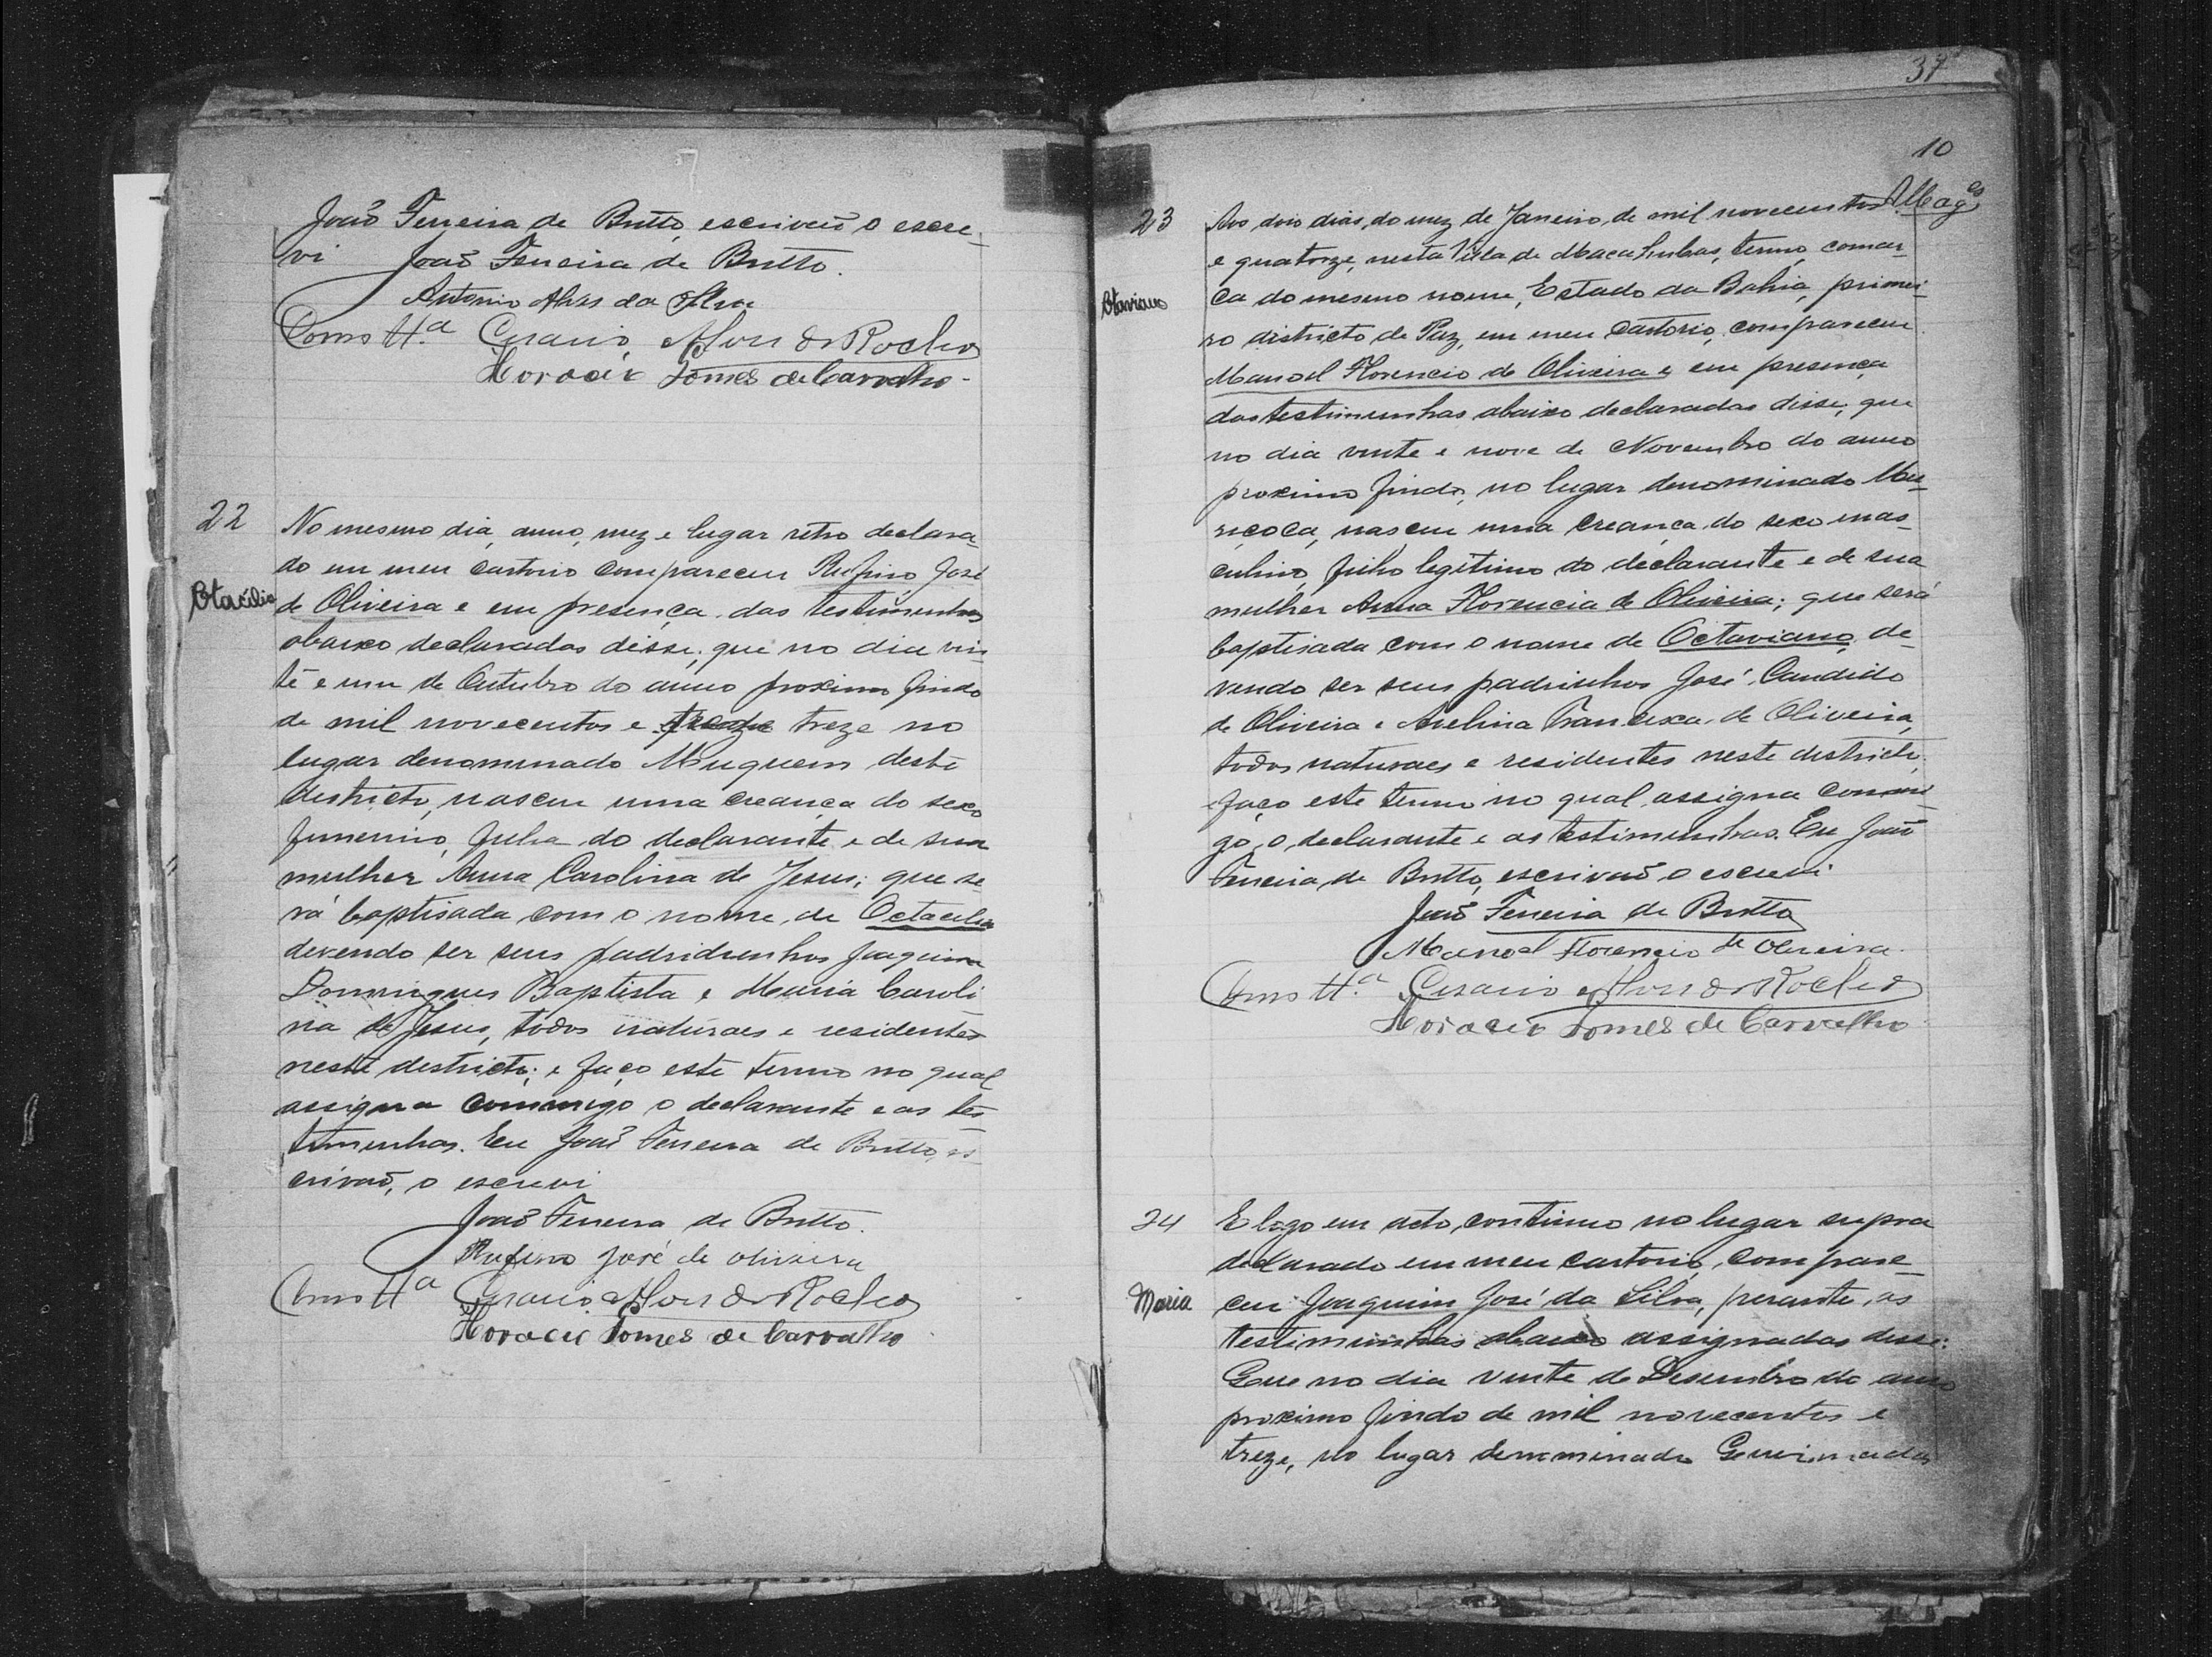 João Ferreira de Britto, escrivão o escre-
vi João Ferreira de Britto.
Antonio Alves da Silva
Como tt.ª Cesario Alves da Rocha
Horacio Gomes de Carvalho
22 No mesmo dia, anno, mez e lugar retro declara-
do em meu cartorio compareceu Rufino José
Otacilia
de Oliveira e em presença das testimunhas
abaixo declaradas disse; que no dia vin-
te e um de Outubro do anno proximo findo
de mil novecentos e treze no
lugar denominado Muquem deste
districto, nasceu uma creança do sexo
femenino, filha do declarante e de sua
mulher Anna Carolina de Jesus; que se-
rá baptisada com o nome de Octacilia
devendo ser seus padridinhos Joaquim
Domingues Baptista e Maria Caroli
na de Jesus, todos naturaes e residentes
neste destricto; e faço este termo no qual
assigna commigo o declarante e as tes-
timunhas. Eu João Ferreira de Britto, es-
crivão, o escrevi
João Ferreira de Britto.
Rufino José de Oliveira
Como tt.ª Cesario Alves da Rocha
Horacio Gomes de Carvalho
37
10
23 Aos dois dias, do mez de Janeiro, de mil novecentos
e quatorze, nesta Villa de Macahubas, termo, comar-
Otaviano
ca do mesmo nome, Estado da Bahia, primei-
ro districto de Paz, em meu cartorio, compareceu
Manoel Florencio de Oliveira e em presença
das testimunhas abaixo declaradas disse; que
no dia vinte e nove de Novembro do anno
proximo findo, no lugar denominado Mu-
riçoca, nasceu uma creança do sexo mas-
culino, filho legitimo do declarante e de sua
mulher Anna Florencia de Oliveira; que será
baptisada com o nome de Octaviano, de-
vendo ser seus padrinhos José Candido
de Oliveira e Avelina Francisca de Oliveira,
todos naturaes e residentes neste districto,
faço este termo no qual assigna commi-
go, o declarante e as testimunhas. Eu João
Ferreira de Britto, escrivão o escrevi
João Ferreira de Britto
Manoel Florencio de Oliveira.
Como tt.ª Cesario Alves da Rocha
Horacio Gomes de Carvalho
24 E logo em acto continuo no lugar supra
declarado em meu cartorio, compare-
Maria
ceu Joaquim José da Silva, perante, as
testimunhas abaixo assignadas disse:
Que no dia vinte de Desembro do anno
proximo findo de mil novecentos e
treze, no lugar denominado Queimadas